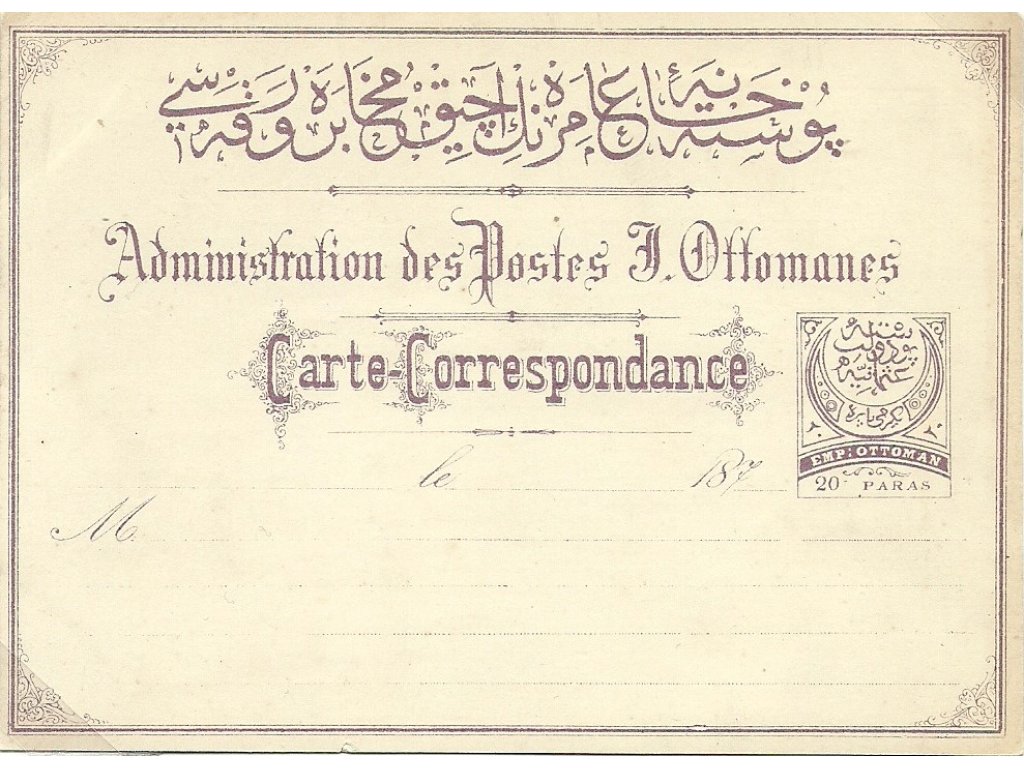 پوسته خانهٔ عامره نڭ آچیق مخابره ورقه سی
Administration des Postes I. Ottomanes
Carte-Correspondance
پوسته دولت
عثمانیه
یگرمی پاره
٢٠ ٢٠
EMP: OTTOMAN
20 PARAS
le 187
M.